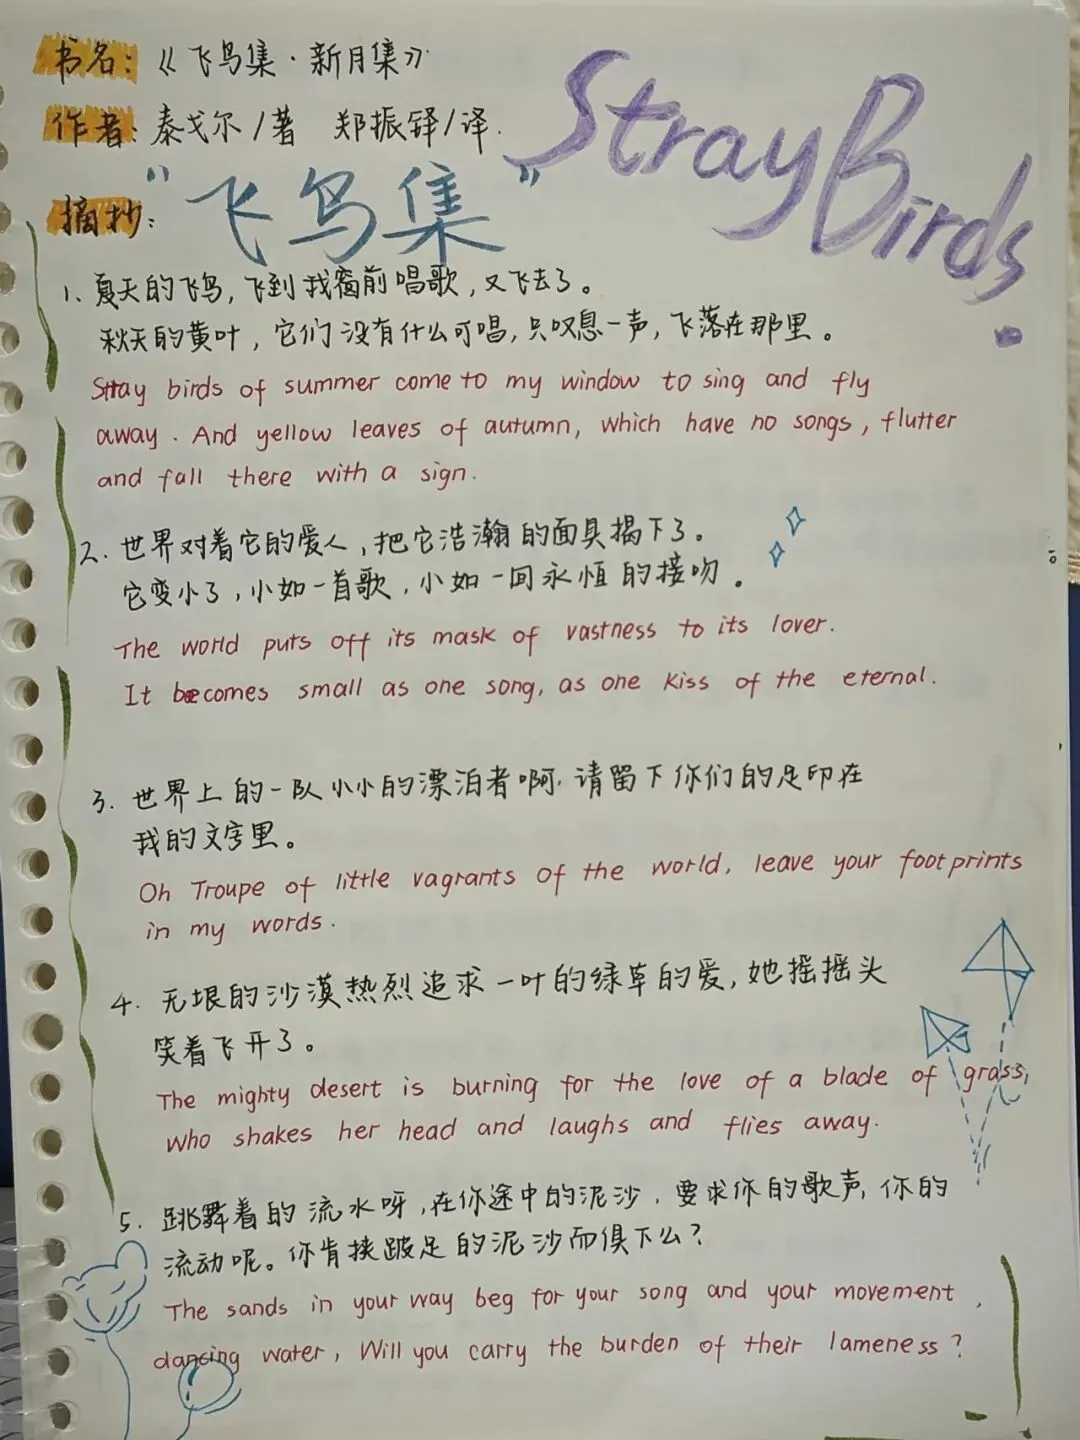 书名：《飞鸟集·新月集》
作者：泰戈尔/著 郑振铎/译.
Stray Birds
摘抄：“飞鸟集”
1、夏天的飞鸟，飞到我窗前唱歌，又飞去了。
秋天的黄叶，它们没有什么可唱，只叹息一声，飞落在那里。
Stray birds of summer come to my window to sing and fly
away. And yellow leaves of autumn, which have no songs, flutter
and fall there with a sign.
2. 世界对着它的爱人，把它浩瀚的面具揭下了。
它变小了，小如一首歌，小如一回永恒的接吻。
The world puts off its mask of vastness to its lover.
It becomes small as one song, as one kiss of the eternal.
3. 世界上的一队小小的漂泊者啊，请留下你们的足印在
我的文字里。
Oh Troupe of little vagrants of the world, leave your footprints
in my words.
4. 无垠的沙漠热烈追求一叶的绿草的爱，她摇摇头
笑着飞开了。
The mighty desert is burning for the love of a blade of grass,
who shakes her head and laughs and flies away.
5. 跳舞着的流水呀，在你途中的泥沙，要求你的歌声，你的
流动呢。你肯挟跛足的泥沙而俱下么？
The sands in your way beg for your song and your movement,
dancing water, Will you carry the burden of their lameness?